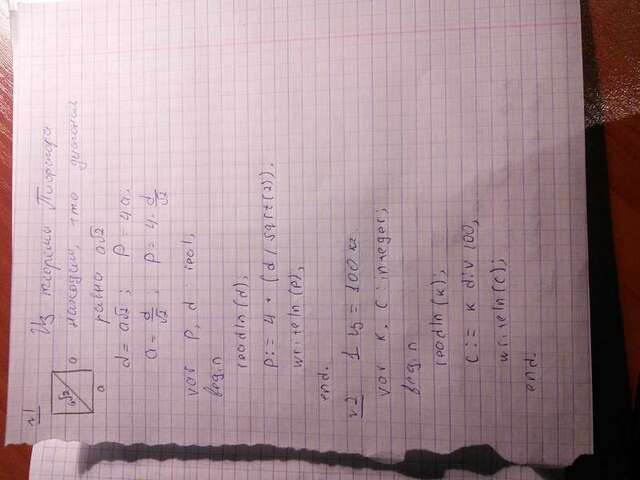 √1
Из теоремы Пифагора
находим, что диагональ
равно a√2
a√2
a
a
d = a√2; P = 4a.
a = d/√2; P = 4·d/√2
var P, d : real;
begin
readln(d);
P:= 4 * (d / sqrt(2)).
writeln(P);
end.
√2 1 ц = 100 кг
var к, С : integer;
begin
readln(к);
С := к div 100;
writeln(С);
end.